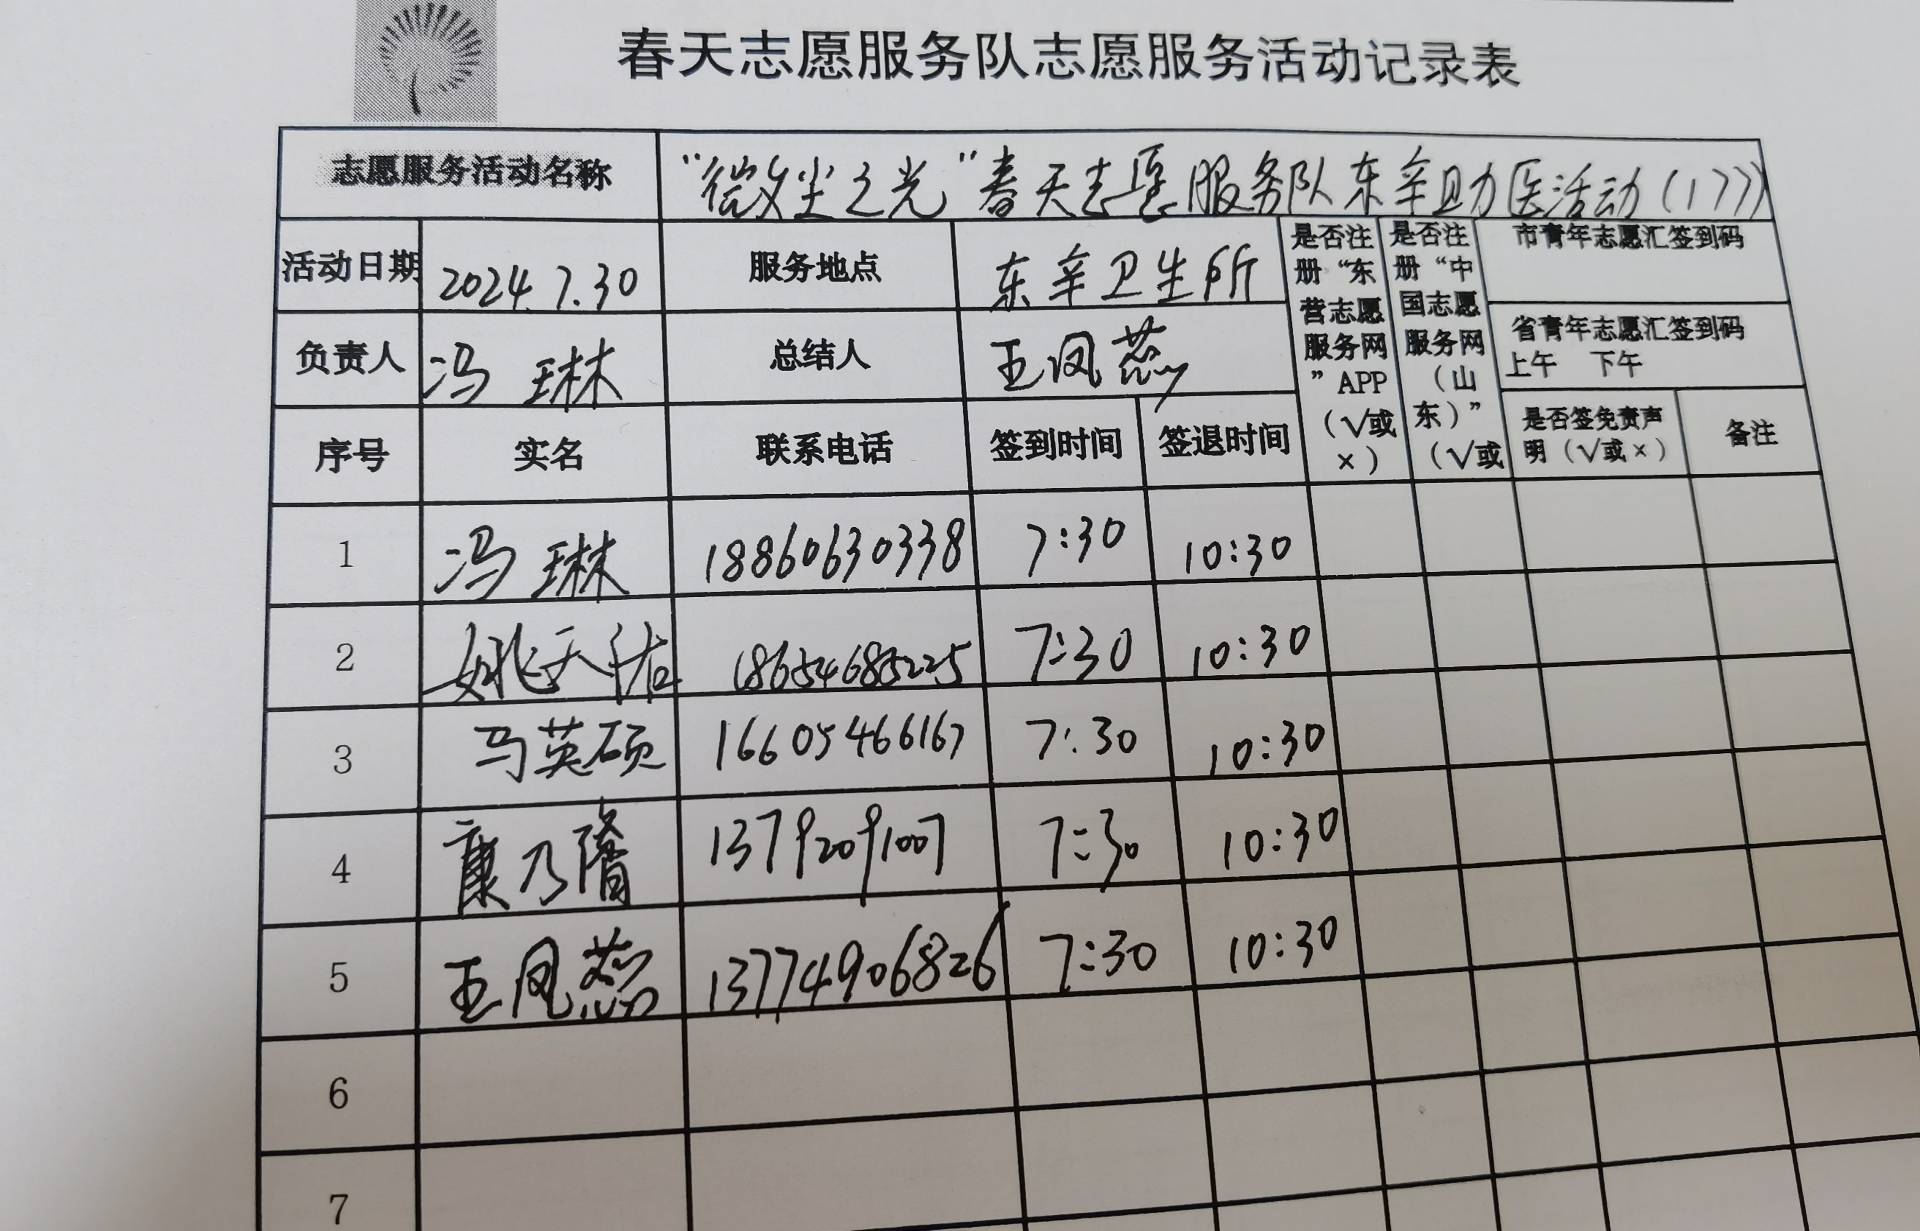 春天志愿服务队志愿服务活动记录表
志愿服务活动名称 “微尘之光”春天志愿服务队东辛助医活动(177)
活动日期 2024.7.30 服务地点 东辛卫生所 是否注册“东营志愿服务网”APP（√或×） 是否注册“中国志愿服务网（山东）”（√或 市青年志愿汇签到码
负责人 冯琳 总结人 王凤蕊 省青年志愿汇签到码
上午 下午
序号 实名 联系电话 签到时间 签退时间 是否签免责声明（√或×） 备注
1 冯琳 18860630338 7:30 10:30
2 姚天佑 18654685225 7:30 10:30
3 马英硕 16605466167 7:30 10:30
4 康乃隋 13792091007 7:30 10:30
5 王凤蕊 13774906826 7:30 10:30
6
7